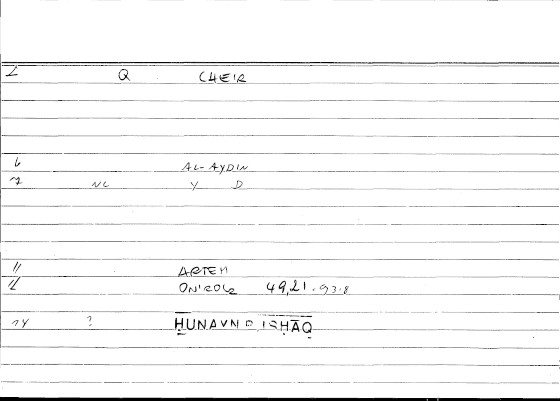 2 Q CHEIR
6 AL-AYDIN
7 NL Y D
11 ARTEM
12 ONIROCR 49,21.93.8
14 ? ḤUNAYN B ISḤĀQ